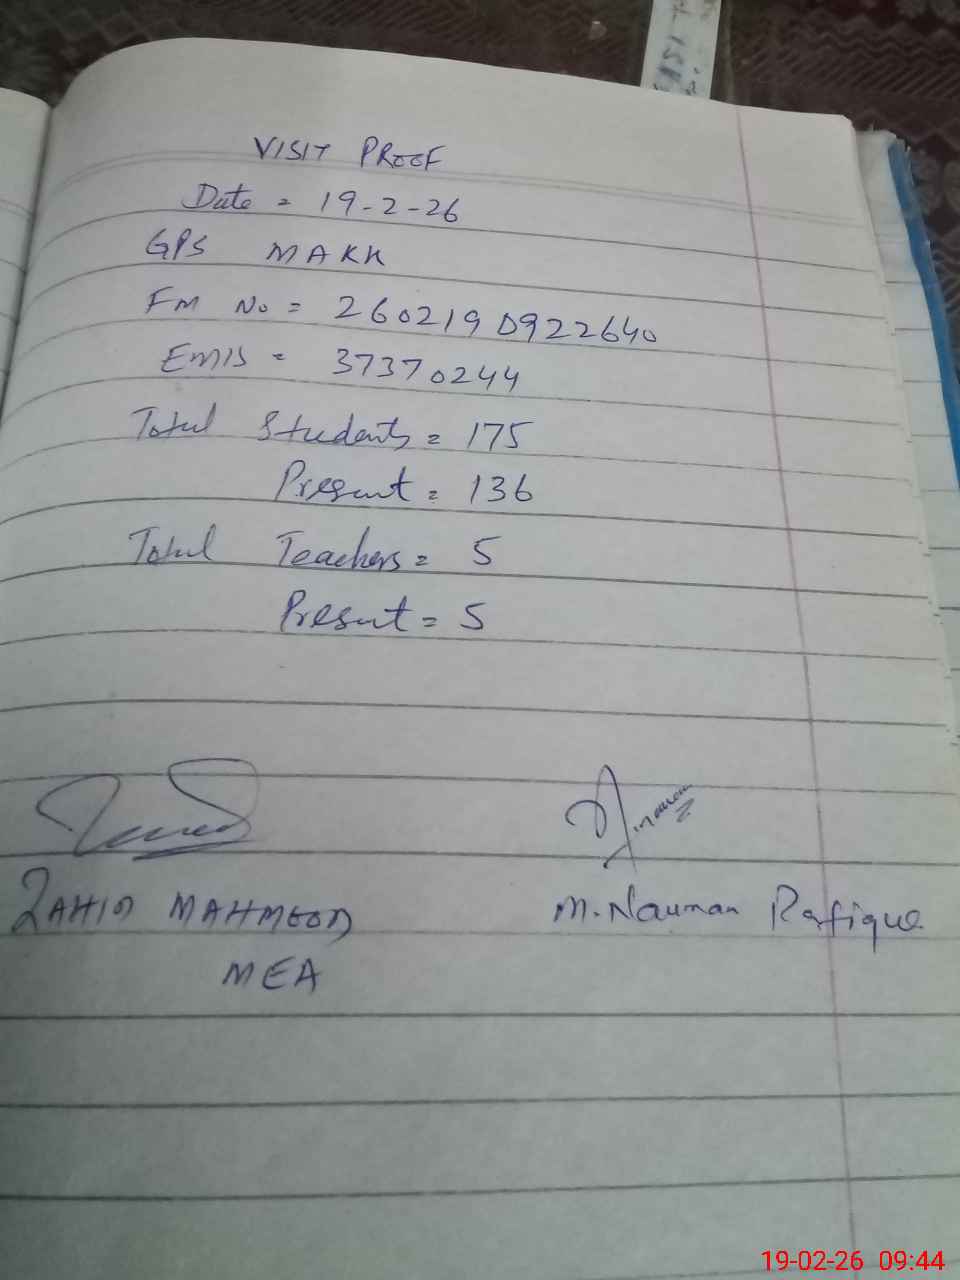 VISIT PROOF
Date = 19-2-26
GPS MAKH
FM No = 2602190922640
EMIS = 37370244
Total Students = 175
Present = 136
Total Teachers = 5
Present = 5
ZAHID MAHMOOD
M. Nauman Rafique
MEA
19-02-26 09:44